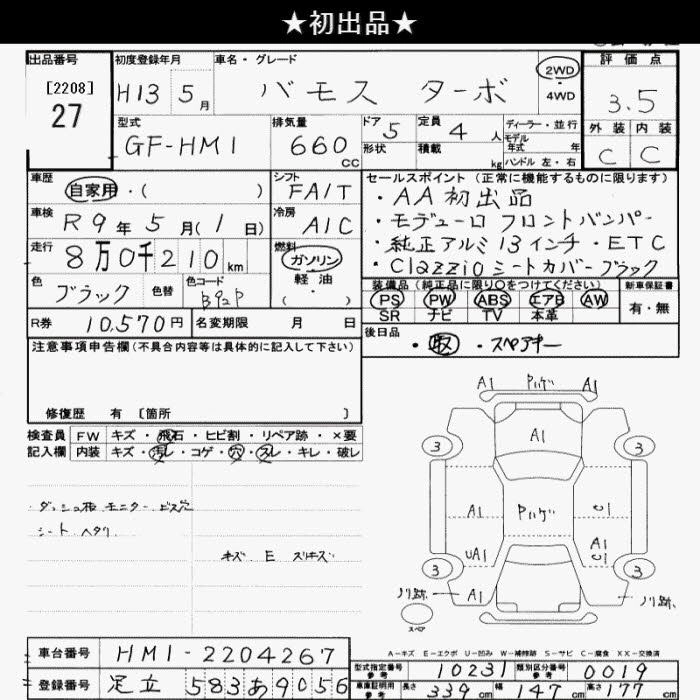 ★初出品★
出品番号 初度登録年月 車名・グレード 評価点
[2208] 27 H13年 5月 バモス ターボ 2WD 4WD 3.5
型式 排気量 ドア 定員 ディーラー・並行 外装 内装
GF-HM1 660cc 5 4人 モデル年式 年 C C
形状 積載 kg ハンドル 左・右
車歴 シフト セールスポイント(正常に機能するものに限ります)
自家用・( ) FAIT ・AA初出品
車検 R9年5月(1日) 冷房 AIC ・モデューロ フロントバンパー
走行 8万0千210km 燃料 ガソリン ・純正アルミ13インチ・ETC
軽油 ・( ) ・Clazzioシートカバーブラック
色 ブラック 色替 色コード B92P 装備品(純正品に限り○をつけてください) 新車保証書
PS PW ABS エアB AW 有・無
SR ナビ TV 本革
R券 10,570円 名変期限 月 日 後日品
・取 ・スペアキー
注意事項申告欄(不具合内容等は具体的に記入して下さい)
修復歴 有 [箇所 ]
検査員 FW キズ・飛石・ヒビ割・リペア跡・×要
記入欄 内装 キズ・汚レ・コゲ・穴・スレ・キレ・破レ
ダッシュ板 モニター ビス穴
シート ヘタリ
キズ E スリキズ
A1 Pハゲ A1
A1
3 3
A1 Pハゲ C1
UA1 A1 C1
3 3
ノリ跡、 A1 ノリ跡、
スペア
A-キズ E-エクボ U-凹み W-補修跡 S-サビ C-腐食 XX-交換済
車台番号 HM1-2204267 型式指定番号 参考 10231 類別区分番号 参考 0019
登録番号 足立 583あ9056 車庫証明用 参考 長さ 339cm 幅 147cm 高さ 177cm